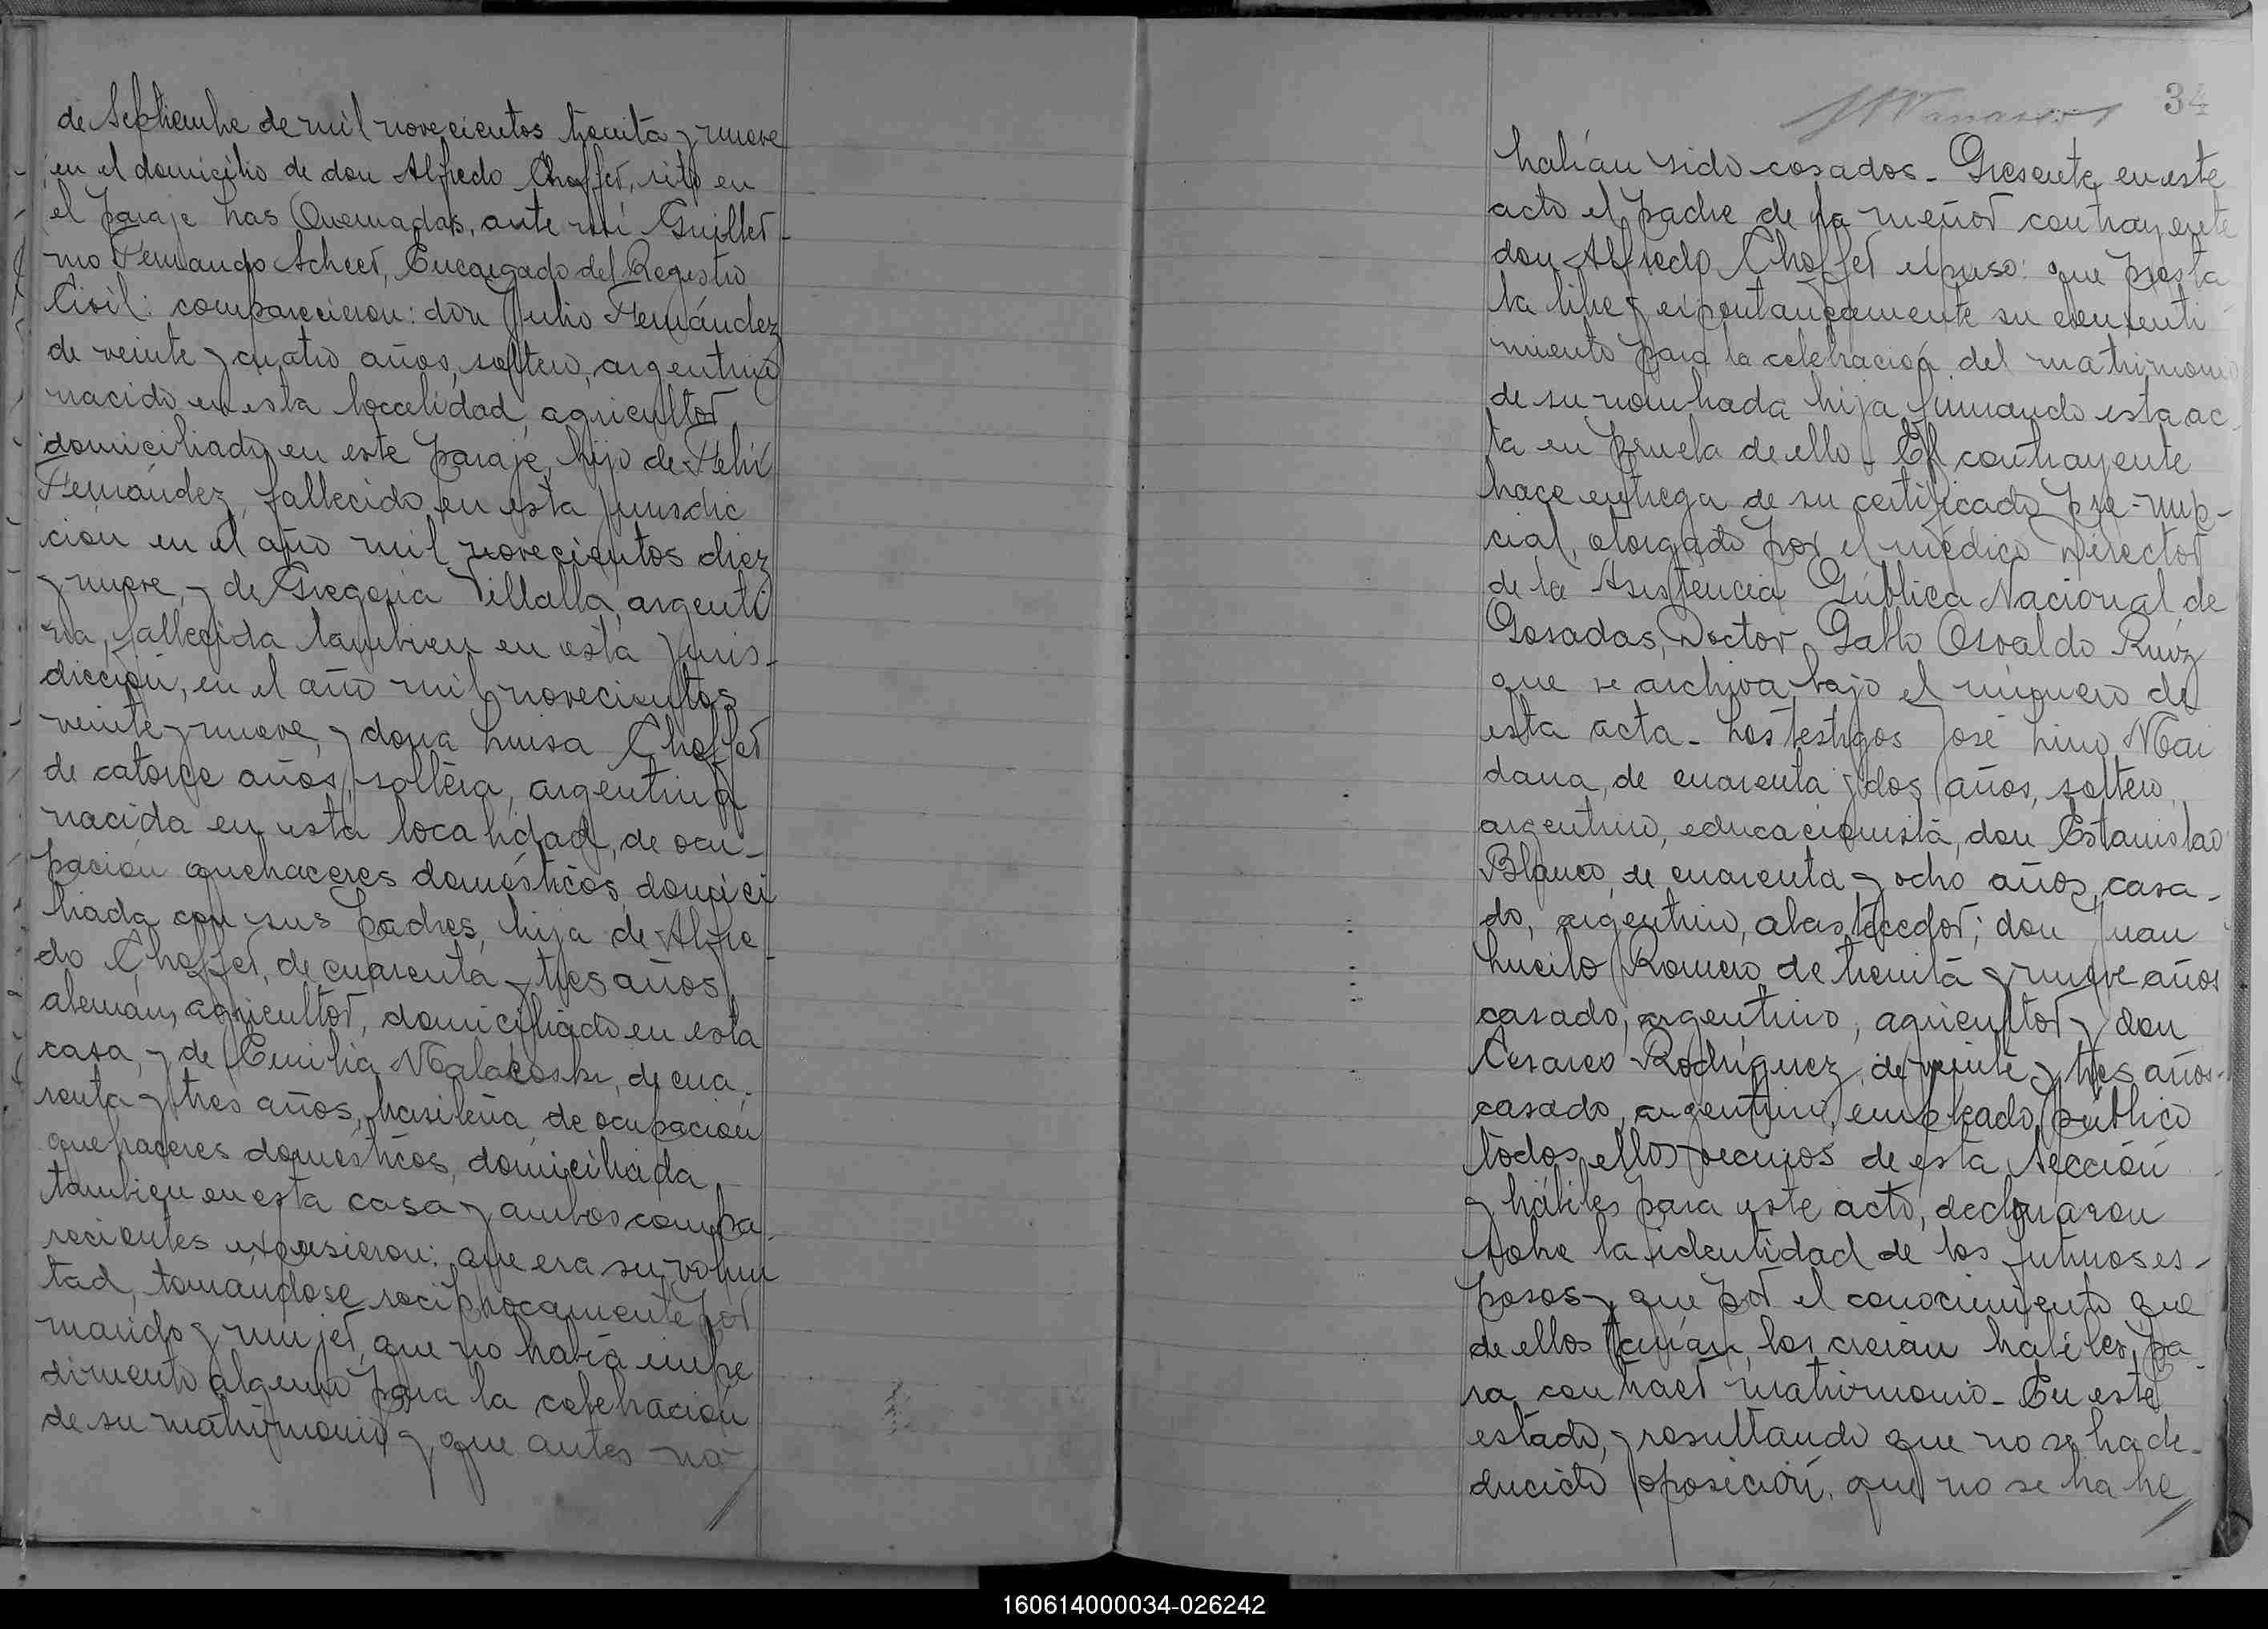 de Septiembre de mil novecientos treinta y nueve
en el domicilio de don Alfredo Choffer, sito en
el paraje Las Quemadas, ante mí Guiller-
mo Fernando Scheer, Encargado del Registro
Civil: comparecieron: don Julio Fernández
de veinte y cuatro años, soltero, argentino
nacido en esta localidad, agricultor
domiciliado en este paraje, hijo de Felix
Fernández, fallecido en esta jurisdic
ción en el año mil novecientos diez
y nueve, y de Gregoria Villalba, argenti
na, fallecida tambien en esta juris-
dicción, en el año mil novecientos
veinte y nueve, y doña Luisa Choffer
de catorce años, soltera, argentina
nacida en esta localidad, de ocu-
pación quehaceres domésticos, domici
liada con sus padres, hija de Alfre
do Choffer, de cuarenta y tres años
alemán, agricultor, domiciliado en esta
casa, y de Emilia Malakoski, de cua-
renta y tres años, brasileña, de ocupación
quehaceres domésticos, domiciliada
tambien en esta casa y ambos compa-
recientes expusieron: que era su volun
tad, tomándose recíprocamente por
marido y mujer, que no había impe
dimento alguno para la celebración
de su matrimonio y, que antes no
34
habían sido casados - Presente en este
acto el padre de la menor contrayente
don Alfredo Choffer expuso: que presta
ba libre y expontáneamente su consenti
miento para la celebración del matrimonio
de su nombrada hija firmando esta ac
ta en prueba de ello - El contrayente
hace entrega de su certificado pre-nup-
cial, otorgado por el médico Director
de la Asistencia Pública Nacional de
Posadas, Doctor Pablo Osvaldo Ruiz
que se archiva bajo el número de
esta acta - Los testigos José Lino Mai
dana, de cuarenta y dos años, soltero,
argentino, educacionista, don Estanislao
Blanco, de cuarenta y ocho años, casa-
do, argentino, abastecedor; don Juan
Lucilo Romero, de treinta y nueve años
casado, argentino, agricultor y don
Cesareo Rodríguez, de veinte y tres años-
casado, argentino, empleado público
todos ellos vecinos de esta Sección
y hábiles para este acto, declararon
sobre la identidad de los futuros es-
posos y que por el conocimiento que
de ellos tenían, los creían habiles pa-
ra contraer matrimonio - En este
estado, y resultando que no se ha de-
ducido oposición, que no se ha he
160614000034-026242